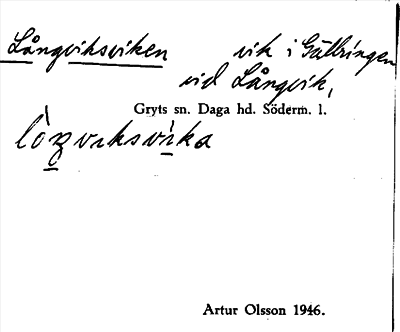 Långviksviken vik i Gällringen
vid Långvik,
Gryts sn. Daga hd. Söderm. l.
Artur Olsson 1946.